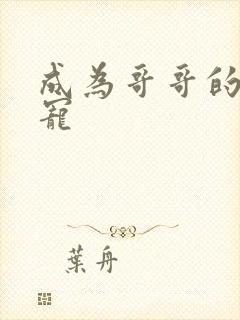 成為哥哥的
寵
葉舟